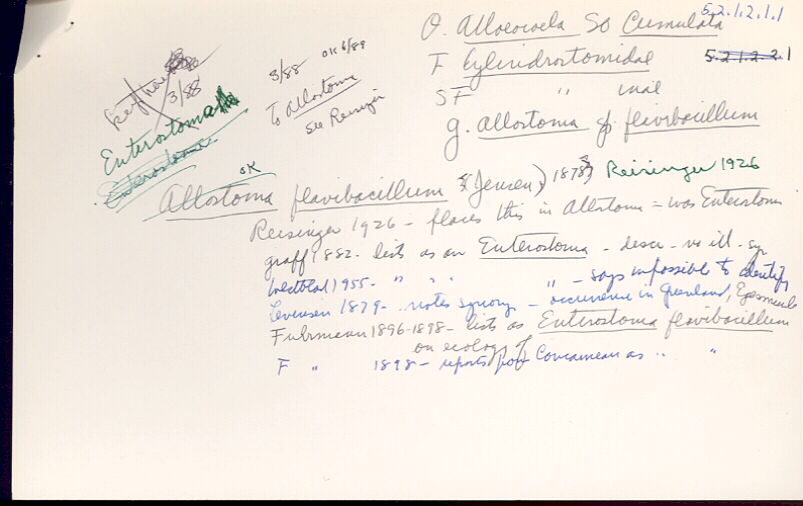 5.2.1.2.1.1
O. Alloeocoela SO Cumulata
F Cylindrostomidae 5.2.1.2.2.1
SF " inae
g. Allostoma sp flavibacillum
3/88
3/88 OK 6/89
To Allostoma
see Reisinger
Enterostoma
Enterostoma
OK
Allostoma flavibacillum (Jensen) 1878 Reisinger 1926
Reisinger 1926 - places this in Allostoma = was Enterostoma
Graff 1882 - lists as an Enterostoma - desc - no ill - sy
Westblad 1955 - " " " " - says impossible to identify
Levinsen 1879 - notes synony - occurrence in Greenland, Egesminde
Fuhrmann 1896-1898 - lists as Enterostoma flavibacillum
on ecology of
F " 1898 - reports from Concarneau as " "